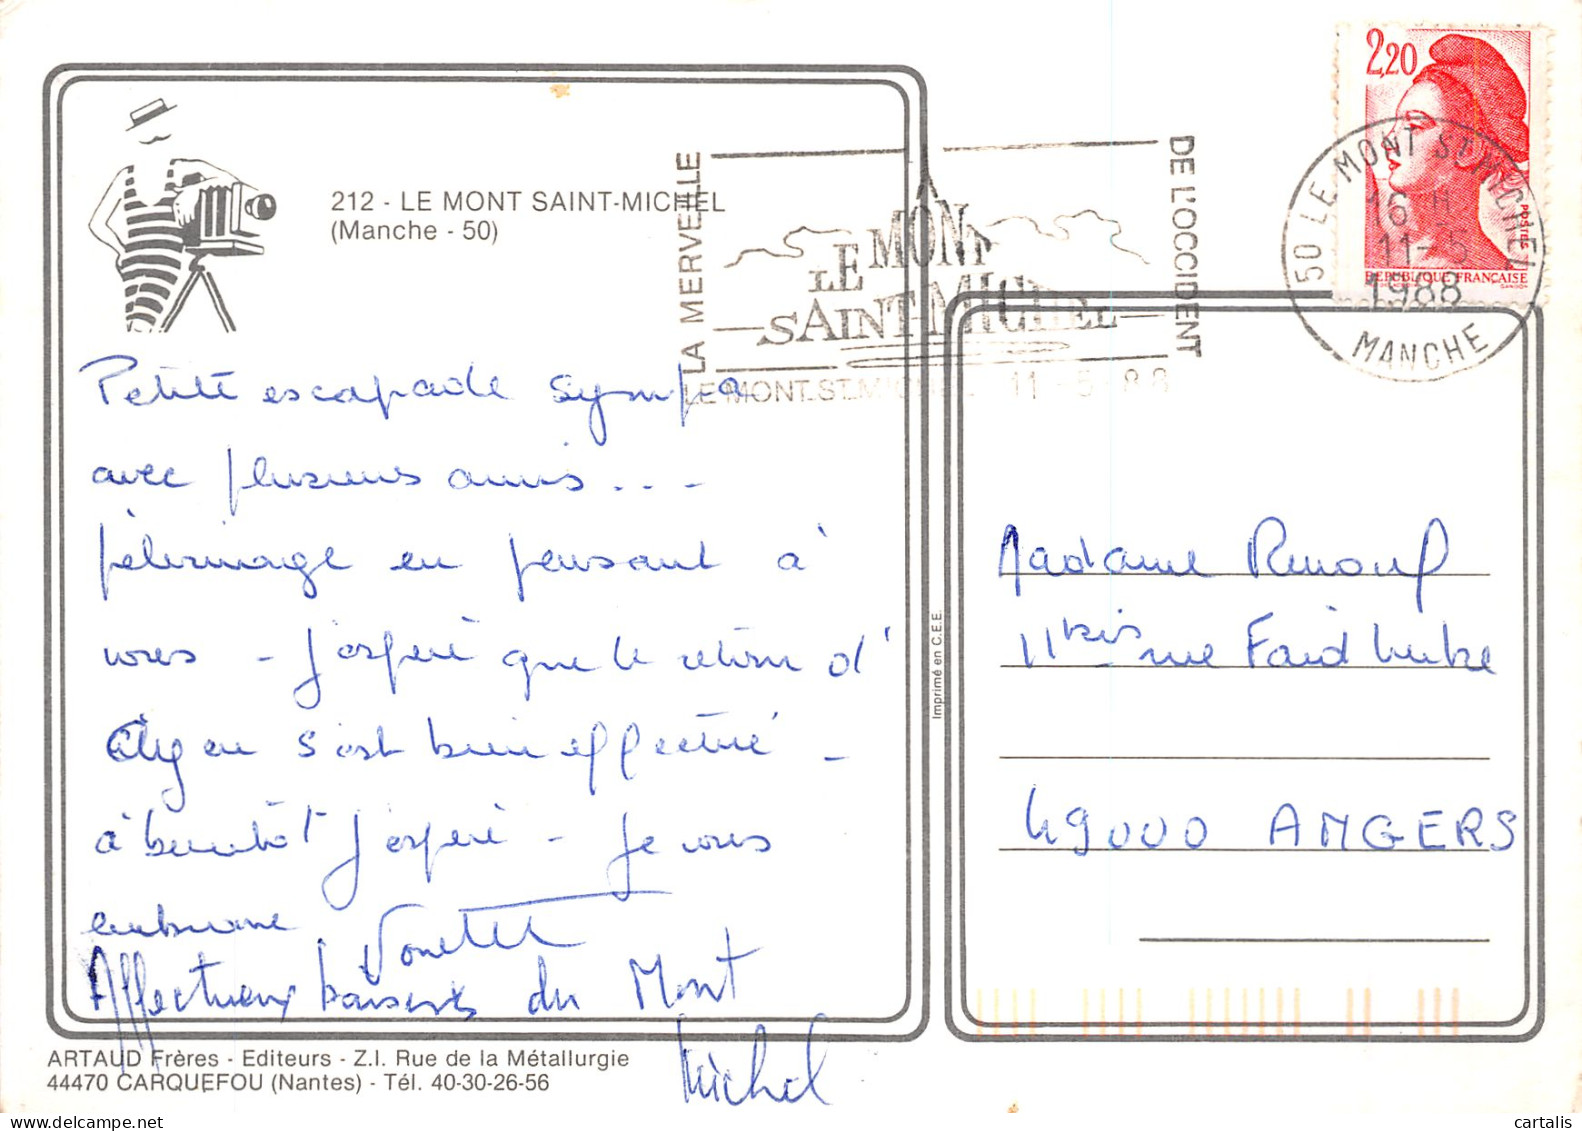 212 - LE MONT SAINT-MICHEL
(Manche - 50)
LA MERVEILLE
DE L'OCCIDENT
LE MONT
SAINT-MICHEL
LE MONT ST MICHEL 11-5 88
2,20
POSTES
REPUBLIQUE FRANÇAISE
50 LE MONT ST MICHEL
16 H
11-5
1988
MANCHE
Petite escapade sympa
avec plusieurs amis...
pèlerinage en pensant à
vous - J'espère que le retour d'
s'est bien effectué -
à bientôt J'espère - Je vous
embrasse
Affectueux baisers du Mont
Michel
Imprimé en C.E.E.
Madame Renouf
11 bis rue Faidherbe
49000 ANGERS
ARTAUD Frères - Editeurs - Z.I. Rue de la Métallurgie
44470 CARQUEFOU (Nantes) - Tél. 40-30-26-56
cartalis